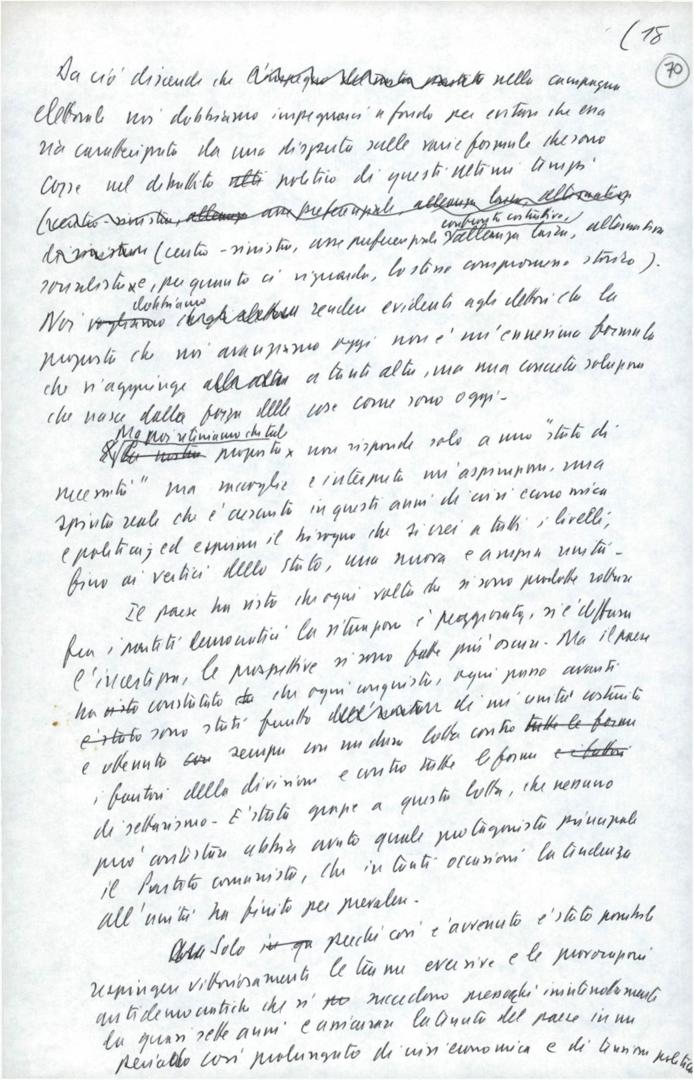 (18
70
Da ciò discende che l'impegno del nostro partito nella campagna
elettorale noi dobbiamo impegnarci a fondo per evitare che essa
sia caratterizzata da una disputa sulle varie formule che sono
corse nel dibattito politico di questi ultimi tempi
(centro-sinistra, alleanza asse preferenziale, alleanza laica, alternativa
confronto costruttivo,
di sinistra (centro-sinistra, asse preferenziale, alleanza laica, alternativa
socialista e, per quanto ci riguarda, lo stesso compromesso storico).
dobbiamo
Noi vogliamo rendere evidente agli elettori che la
proposta che noi avanziamo oggi non è un'ennesima formula
che si aggiunge a tante altre, ma una concreta soluzione
che nasce dalla forza delle cose come sono oggi-
Ma noi riteniamo che tale
La nostra proposta x non risponde solo a uno "stato di
necessità" ma raccoglie e interpreta un'aspirazione, una
spinta reale che è cresciuta in questi anni di crisi economica
e politica; ed esprime il bisogno che si crei a tutti i livelli,
fino ai vertici dello Stato, una nuova e ampia unità-
Il paese ha visto che ogni volta che si sono prodotte rotture
fra i partiti democratici la situazione è peggiorata, si è diffusa
l'incertezza, le prospettive si sono fatte più oscure. Ma il paese
ha visto constatato che ogni conquista, ogni passo avanti
è stato sono stati frutto di un'unità costruita
e ottenuta con sempre con una dura lotta contro tutte le forme
i fautori della divisione e contro tutte le forme e i fattori
di settarismo- E' stato grazie a questa lotta, che nessuno
può contestare abbia avuto quale protagonista principale
il Partito comunista, che in tante occasioni la tendenza
all'unità ha finito per prevalere-
Solo perché così è avvenuto è stato possibile
respingere vittoriosamente le trame eversive e le provocazioni
antidemocratiche che si succedono pressoché ininterrottamente
da quasi sette anni e assicurare la tenuta del paese in un
periodo così prolungato di crisi economica e di tensione politica